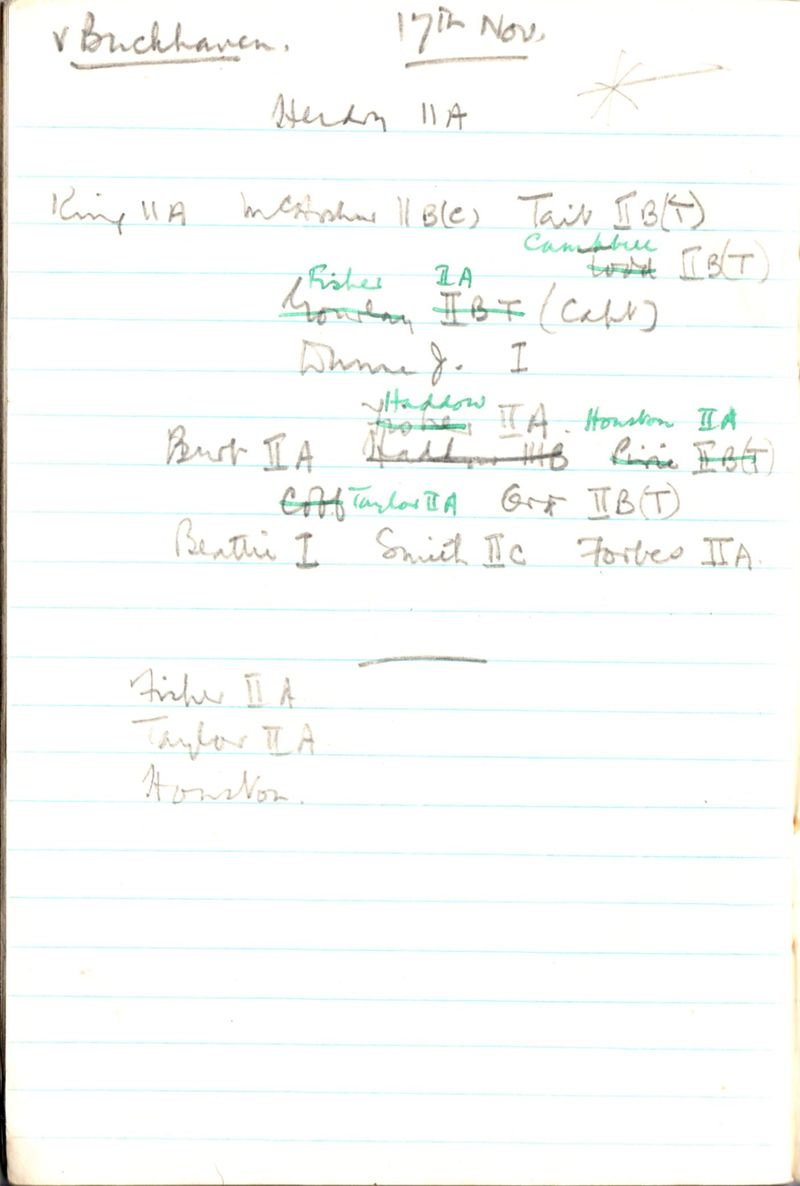 v Buckhaven. 17th Nov.
Hendry IIA
King IIA McArthur IIB(C) Tait IIB(T)
Campbell
Todd IIB(T)
Fisher IIA
Gourlay IIBT (Capt)
J. I
Haddow IIA. Houston IIA
Burt IIA Haddow IIIB Pirie IIB(T)
Taylor IIA Orr IIB(T)
Beattie I Smith IIC Forbes IIA.
Fisher IIA
Taylor IIA
Houston.